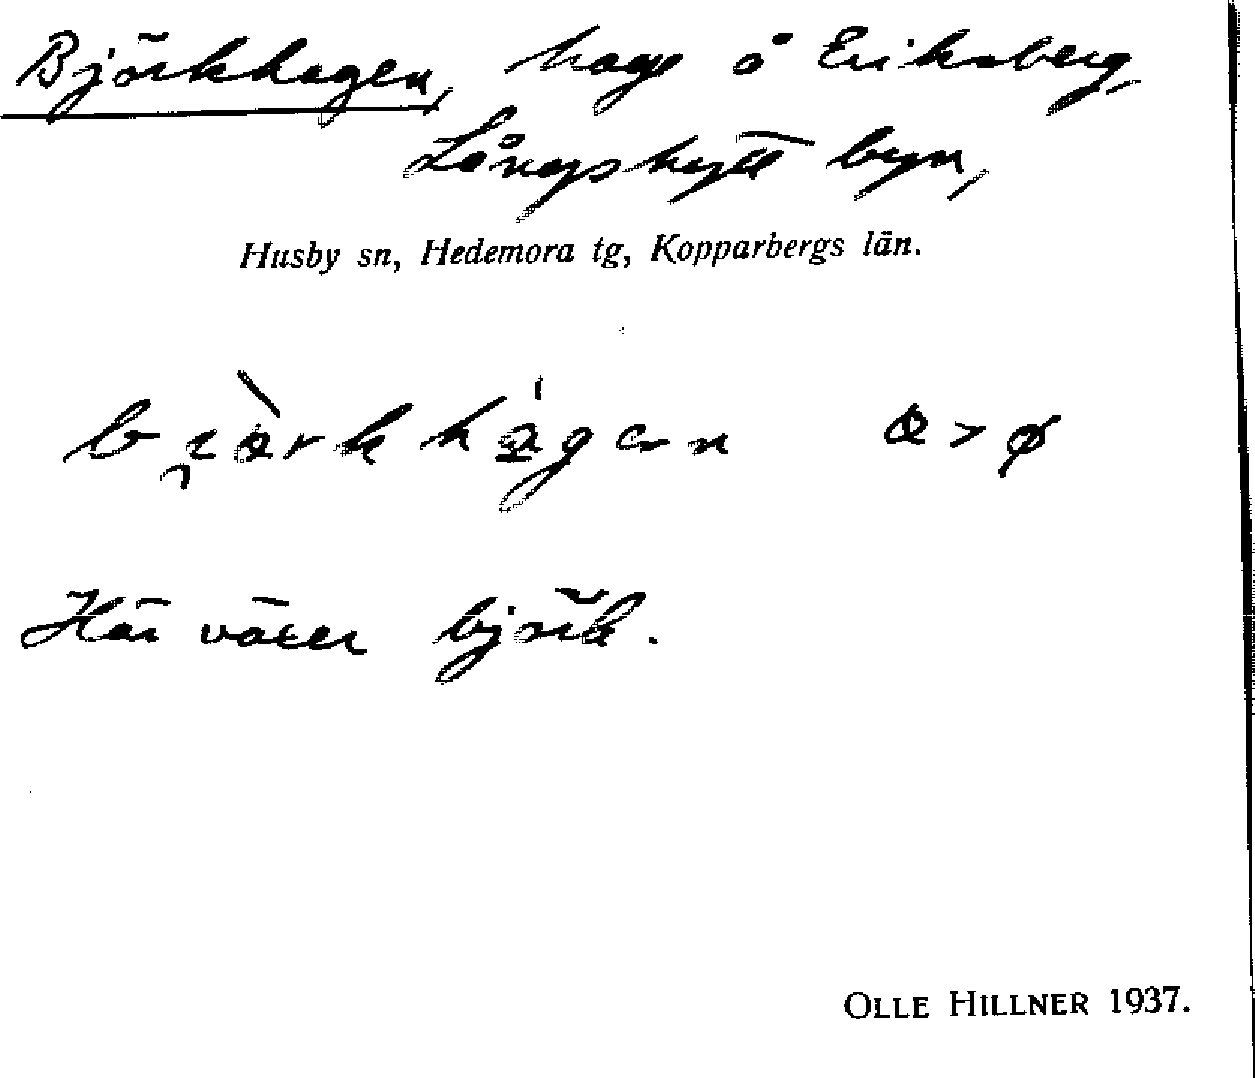 Björkhagen, hage å Eriksberg,
Långshytt byn,
Husby sn, Hedemora tg, Kopparbergs län.
Här växer björk.
OLLE HILLNER 1937.